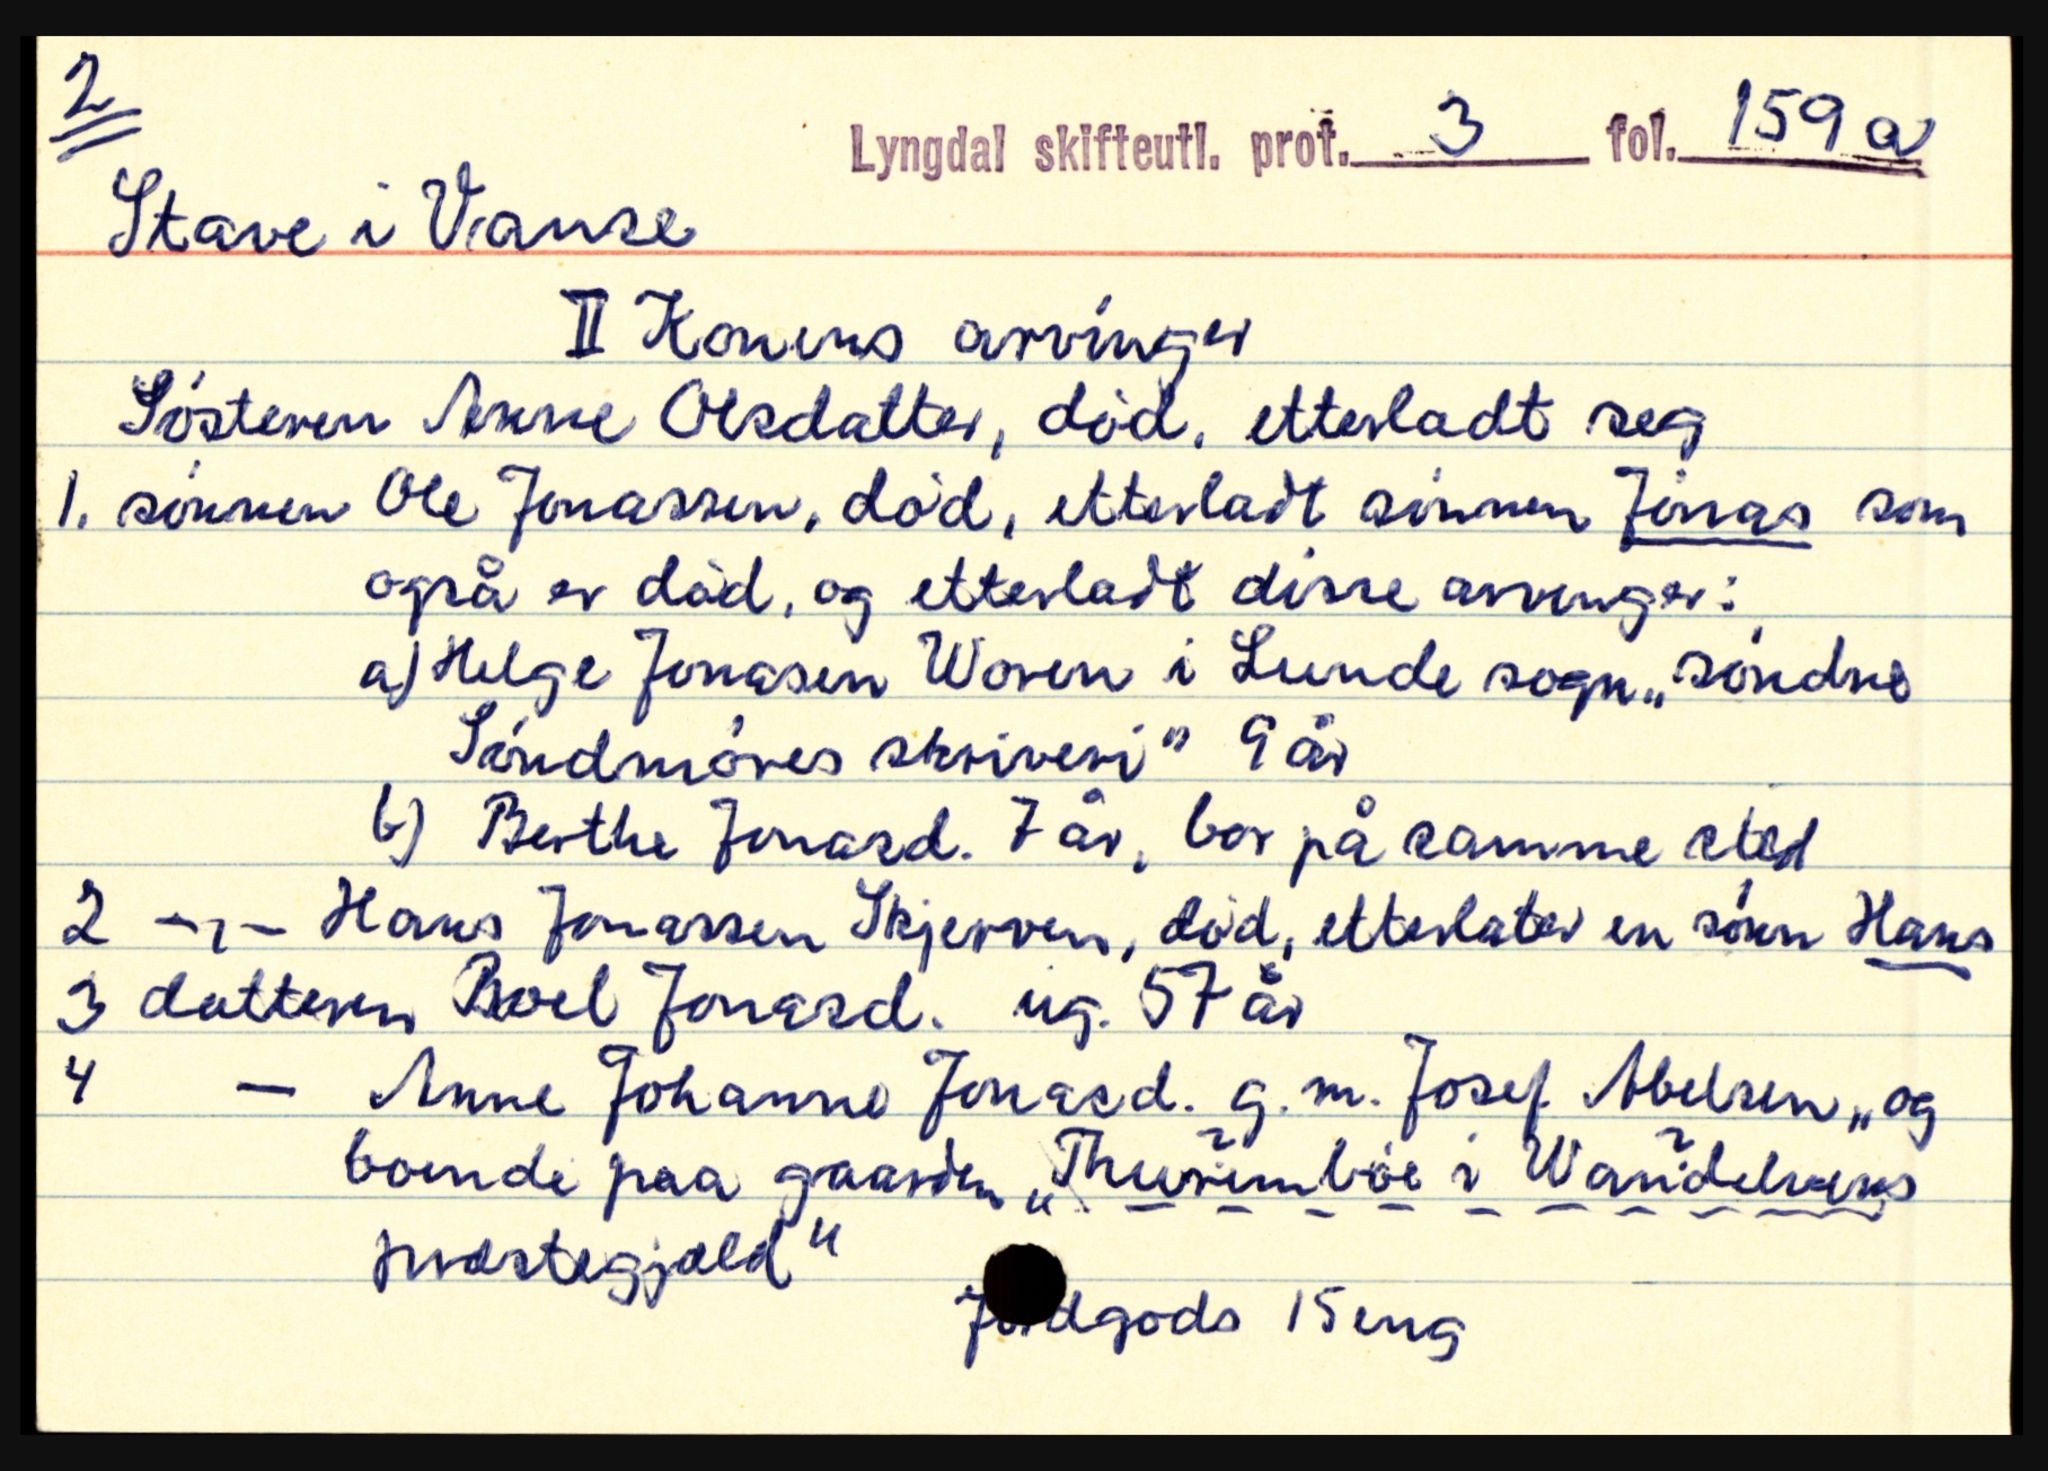 2
Lyngdal skifteutl. prot. 3 fol. 159 a
Stave i Vanse
II Konens arvinger
Søsteren Anne Olsdatter, død, etterladt seg
1. sønnen Ole Jonassen, død, etterladt sønnen Jonas som
også er død, og etterladt disse arvinger:
a) Helge Jonasen Woren i Lunde sogn „søndre
Søndmøres skriveri" 9 år
b) Berthe Jonasd. 7 år, bor på samme sted
2 -„- Hans Jonassen Skjerven, død, etterlater en sønn Hans
3 datteren Boel Jonasd. ug. 57 år
4 — Anne Johanne Jonasd. g. m. Josef Abelsen „og
boende paa gaarden „Thurembøe i Wandelvens
præstegjæld"
Jordgods 15 eng